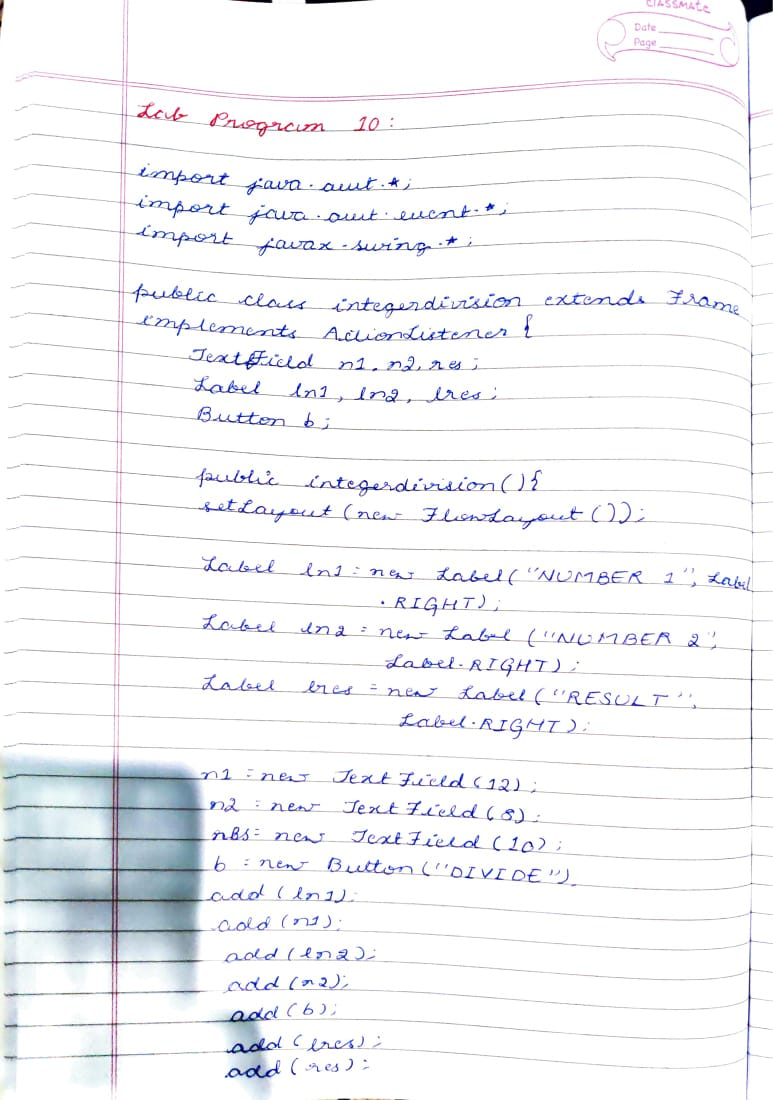 CLASSMATE
Date
Page
Lab Program 10:
import java.awt.*;
import java.awt.event.*;
import javax.swing.*;
public class integerdivision extends Frame
implements ActionListener {
TextField n1, n2, res;
Label ln1, ln2, lres;
Button b;
public integerdivision(){
setLayout (new FlowLayout ());
Label ln1 = new Label ("NUMBER 1", Label
.RIGHT);
Label ln2 = new Label ("NUMBER 2",
Label.RIGHT);
Label lres = new Label ("RESULT",
Label.RIGHT);
n1 = new TextField (12);
n2 = new TextField (8);
res = new TextField (10);
b = new Button ("DIVIDE")
add (ln1);
add (n1);
add (ln2);
add (n2);
add (b);
add (lres);
add (res);